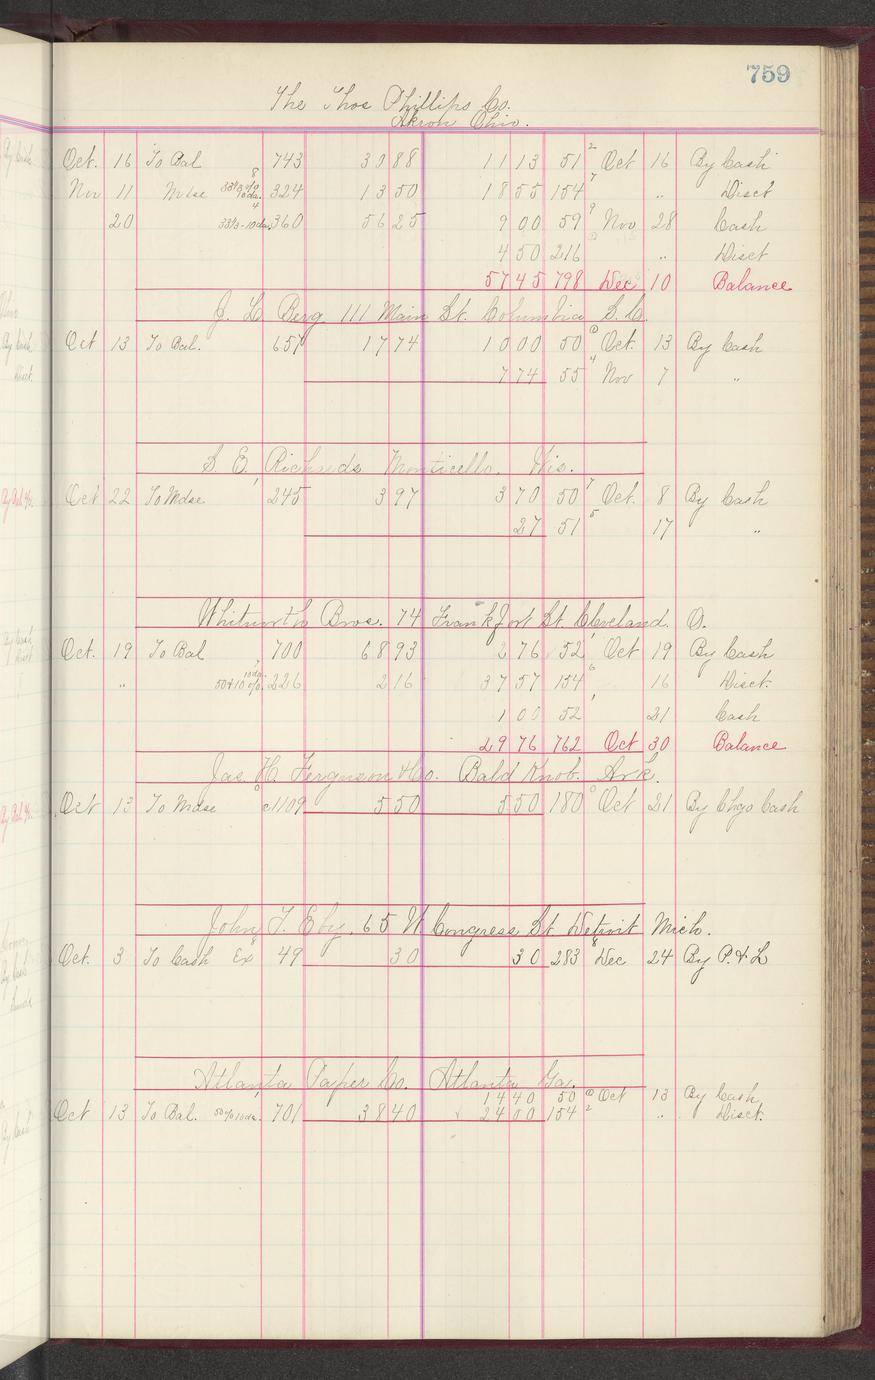 759
The Thos Phillips Co.
Akron Ohio.
Oct. 16 To Bal 743 3088 1113 51 2 Oct 16 By Cash
Nov 11 Mdse 33⅓% 10da. 8 324 1350 1855 154 7 " Disct
20 33⅓-10da. 4 360 5625 900 59 9 Nov 28 Cash
450 216 " Disct
5745 798 Dec 10 Balance
J. L. Berg 111 Main St. Columbia S.C.
Oct 13 To Bal. 657 1774 1000 50 0 Oct. 13 By Cash
774 55 4 Nov 7 "
S. E. Richards Monticello. Wis.
Oct 22 To Mdse 245 397 370 50 7 Oct. 8 By Cash
27 51 5 17 "
Whitworth Bros. 74 Frankfort St. Cleveland. O.
Oct. 19 To Bal 700 6893 276 52 1 Oct 19 By Cash
" 50+10% 10da. 226 216 3757 154 6 16 Disct.
100 52 1 21 Cash
2976 762 Oct 30 Balance
Jas. H. Ferguson & Co. Bald Knob. Ark.
Oct 13 To Mdse c1109 550 550 180 0 Oct 21 By Chgo Cash
John T. Eby. 65 W. Congress St Detroit Mich.
Oct. 3 To Cash Ex 8 49 30 30 283 8 Dec 24 By P. & L
Atlanta Paper Co. Atlanta Ga.
1440 50 0 Oct 13 By Cash
Oct 13 To Bal. 50% 10da. 701 3840 2400 154 2 " Disct.